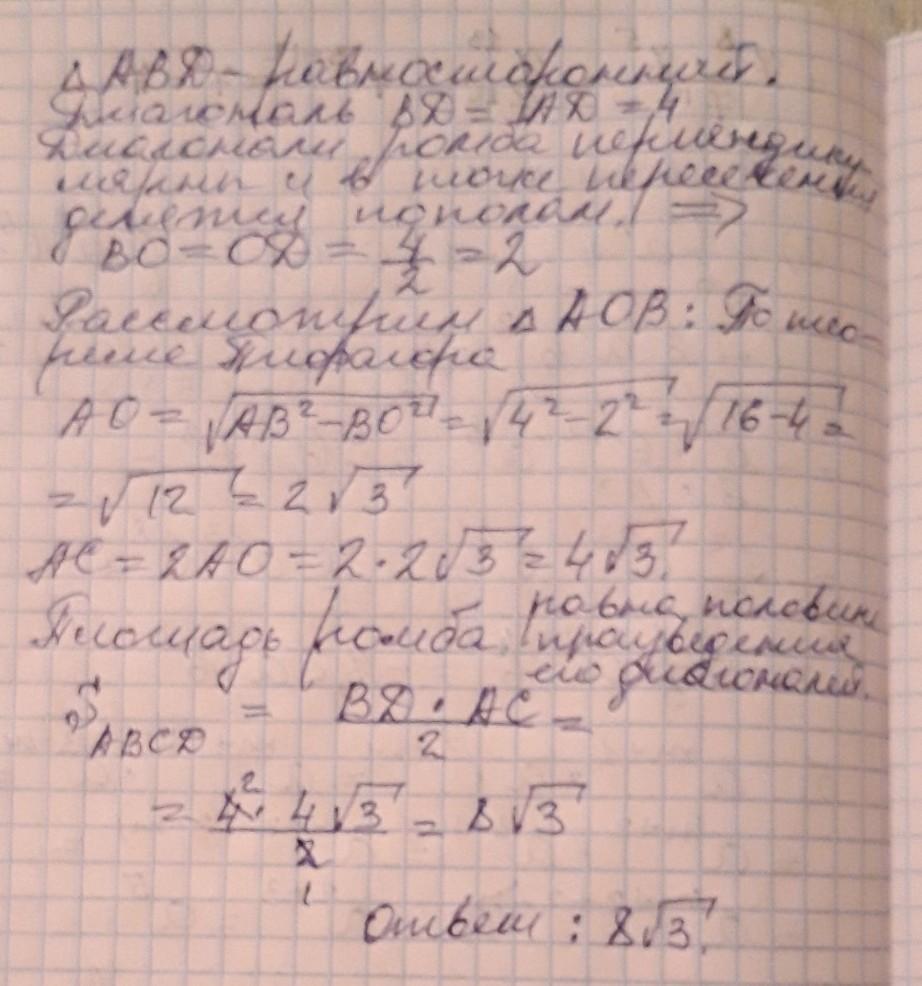 △ABD - равносторонний.
Диагональ BD = AD = 4
Диагонали ромба перпендику
лярны и в точке пересечения
делятся пополам. ⇒
BO = OD = 4/2 = 2
Рассмотрим △ AOB : По тео-
реме Пифагора
AO = √(AB² - BO²) = √(4² - 2²) = √(16 - 4) =
= √12 = 2√3
AC = 2AO = 2 · 2√3 = 4√3.
Площадь ромба равна половине
произведения
его диагоналей.
S_ABCD = (BD · AC)/2 =
= (4 · 4√3)/2 = 8√3
Ответ : 8√3.